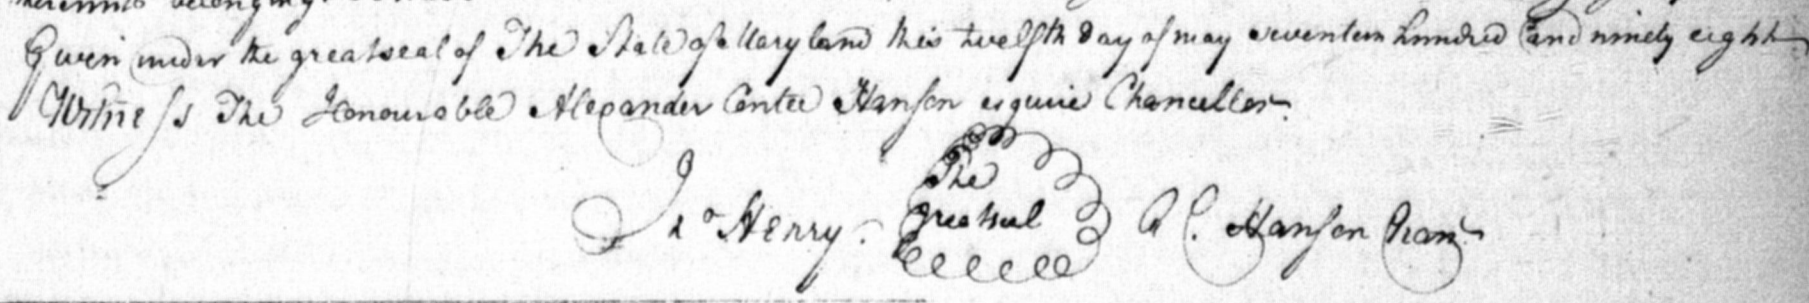 belonging
Given under the great seal of The State of Maryland this twelfth Day of may seventeen hundred and ninety eight
Witness The Honourable Alexander Contee Hanson esquire Chancellor
Jno Henry. The great seal A C. Hanson Chan